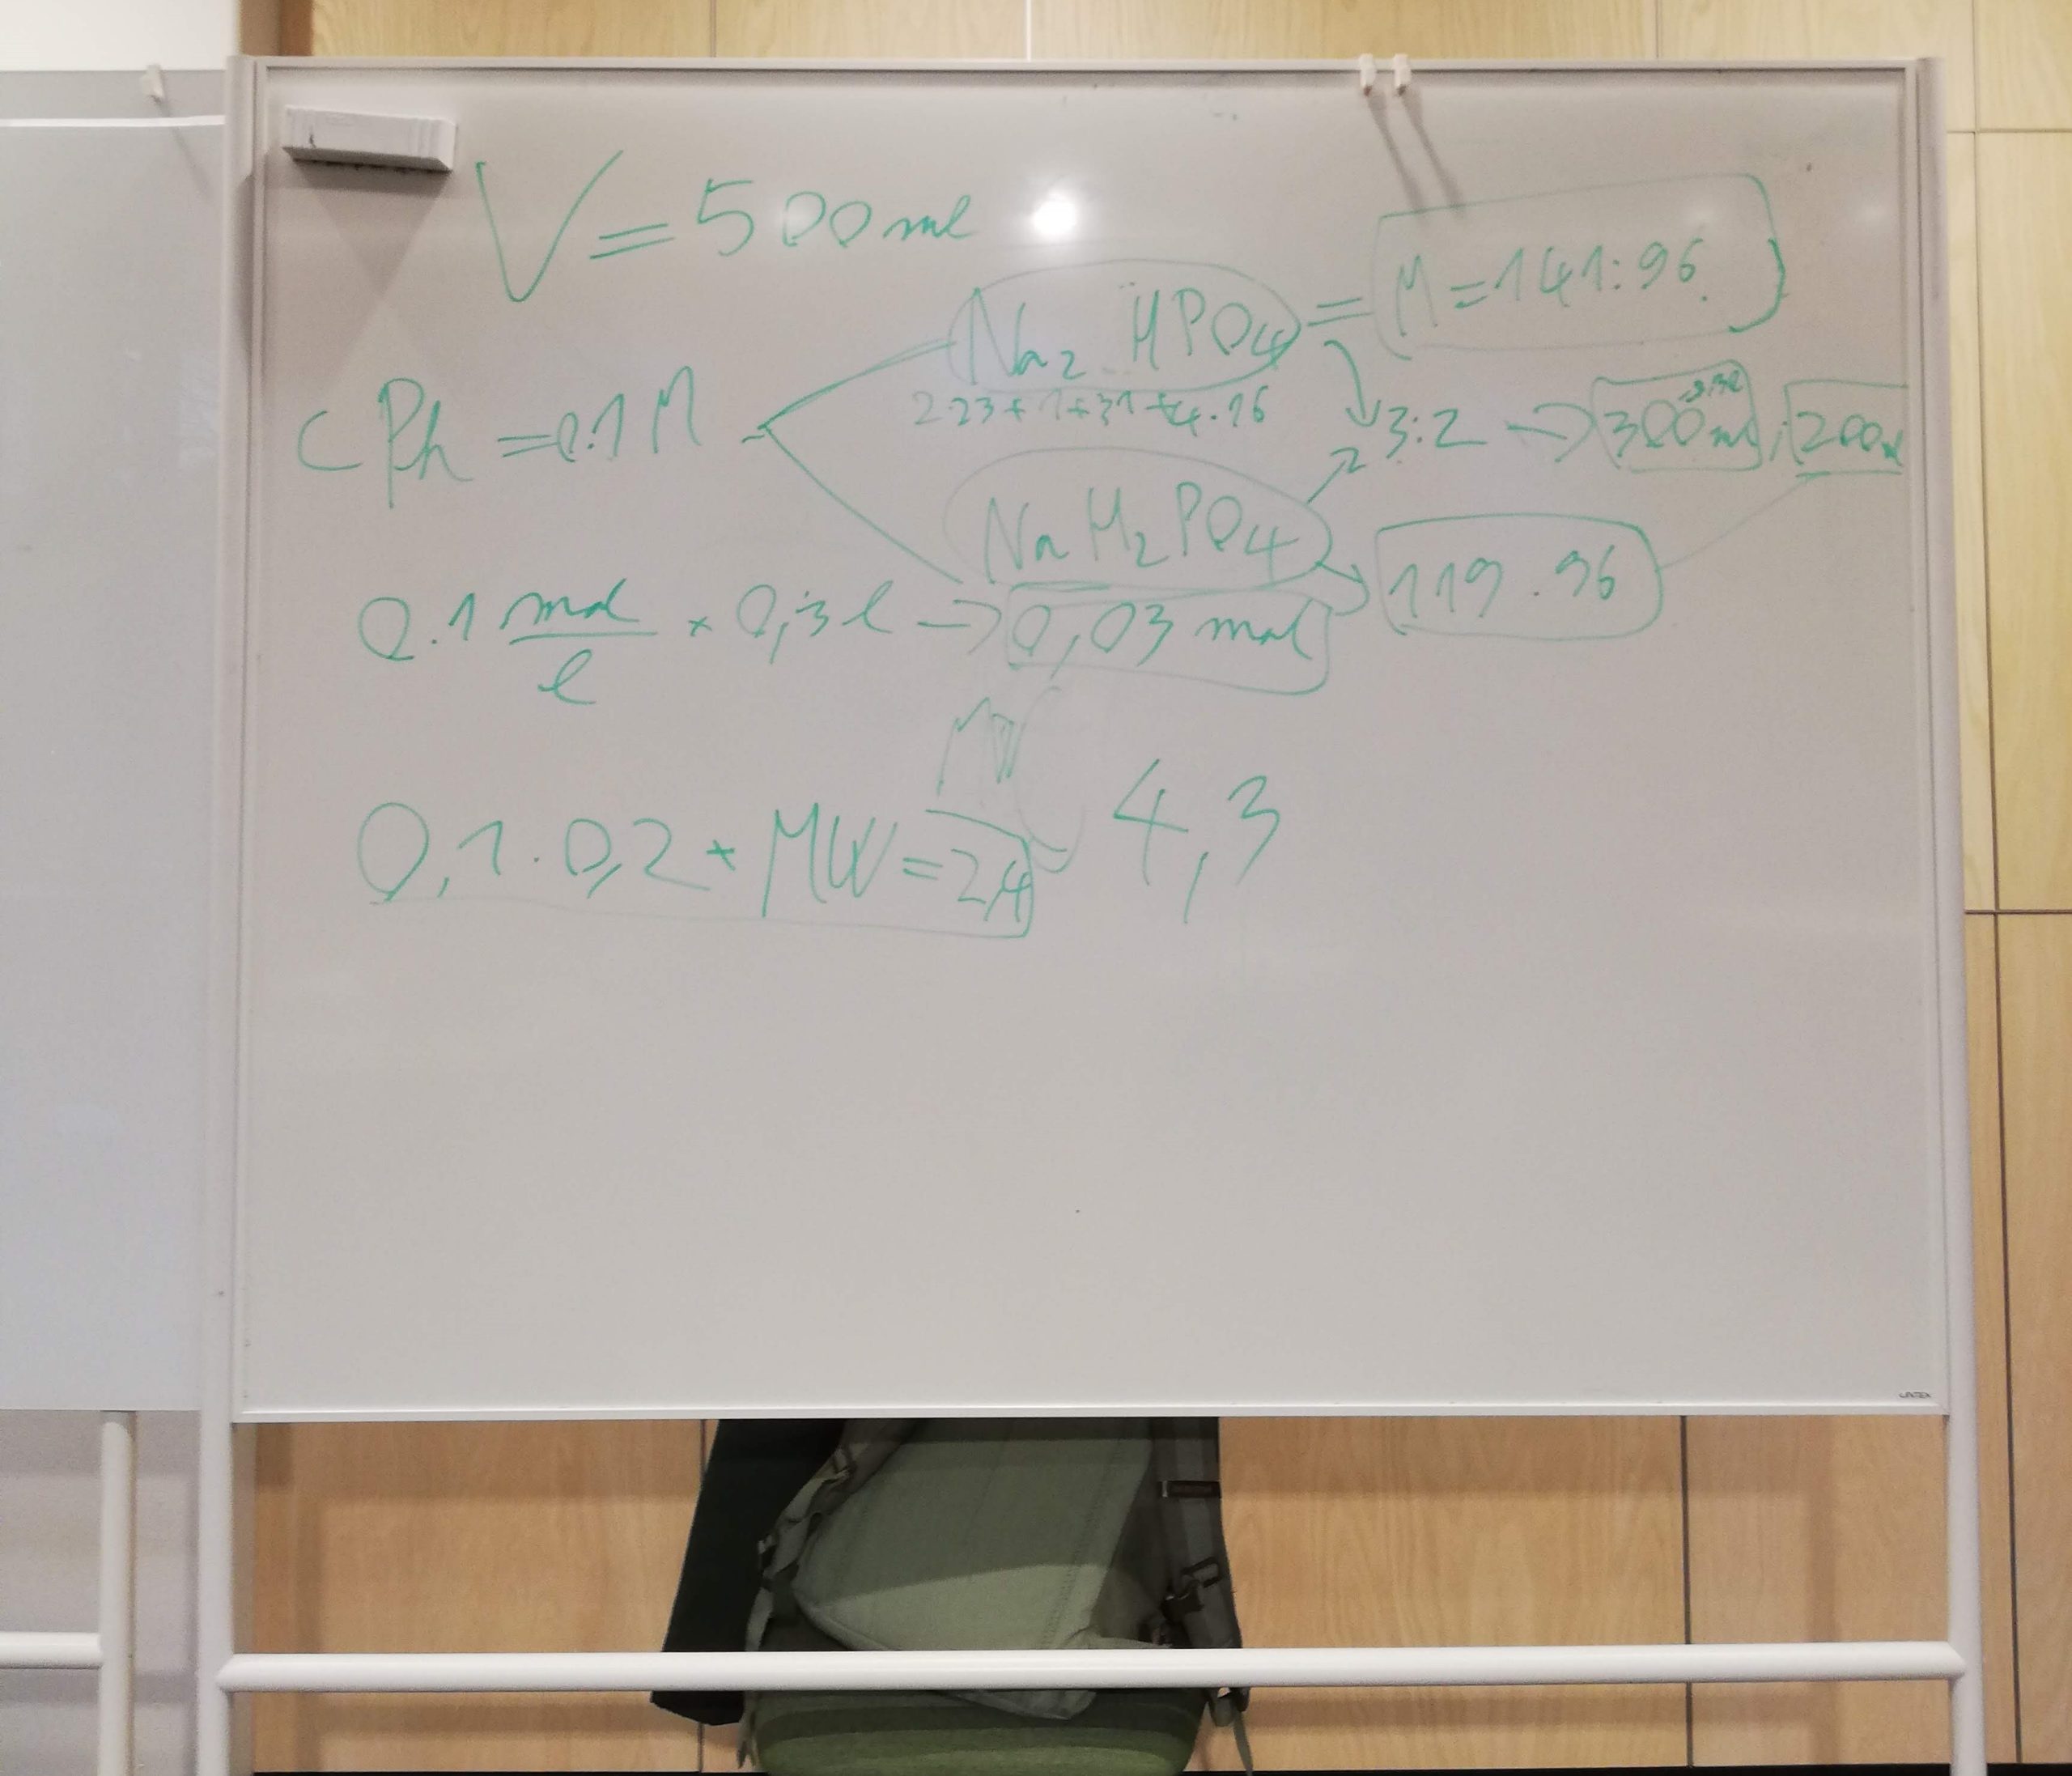 V = 500 ml
Na2 HPO4 = M = 141.96
2·23 + 1 + 31 + 4·16
cPh = 0.1 M
3:2 → 300 ml, 200
NaH2PO4
119.96
0.1 mol/l × 0,3 l → 0,03 mol
0,1 · 0,2 * MW = 2,4
4,3